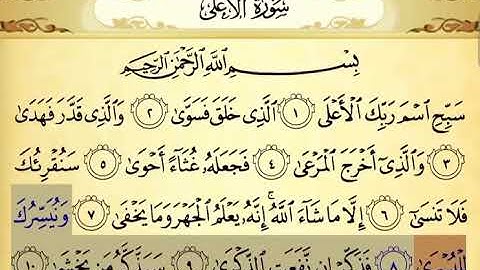 سُورَةُ الأَعْلَى
بِسْمِ اللَّهِ الرَّحْمَٰنِ الرَّحِيمِ
سَبِّحِ ٱسْمَ رَبِّكَ ٱلْأَعْلَى ١ ٱلَّذِى خَلَقَ فَسَوَّىٰ ٢ وَٱلَّذِى قَدَّرَ فَهَدَىٰ
٣ وَٱلَّذِىٓ أَخْرَجَ ٱلْمَرْعَىٰ ٤ فَجَعَلَهُۥ غُثَآءً أَحْوَىٰ ٥ سَنُقْرِئُكَ
فَلَا تَنسَىٰٓ ٦ إِلَّا مَا شَآءَ ٱللَّهُ ۚ إِنَّهُۥ يَعْلَمُ ٱلْجَهْرَ وَمَا يَخْفَىٰ ٧ وَنُيَسِّرُكَ
لِلْيُسْرَىٰ ٨ فَذَكِّرْ إِن نَّفَعَتِ ٱلذِّكْرَىٰ ٩ سَيَذَّكَّرُ مَن يَخْشَىٰ ١٠